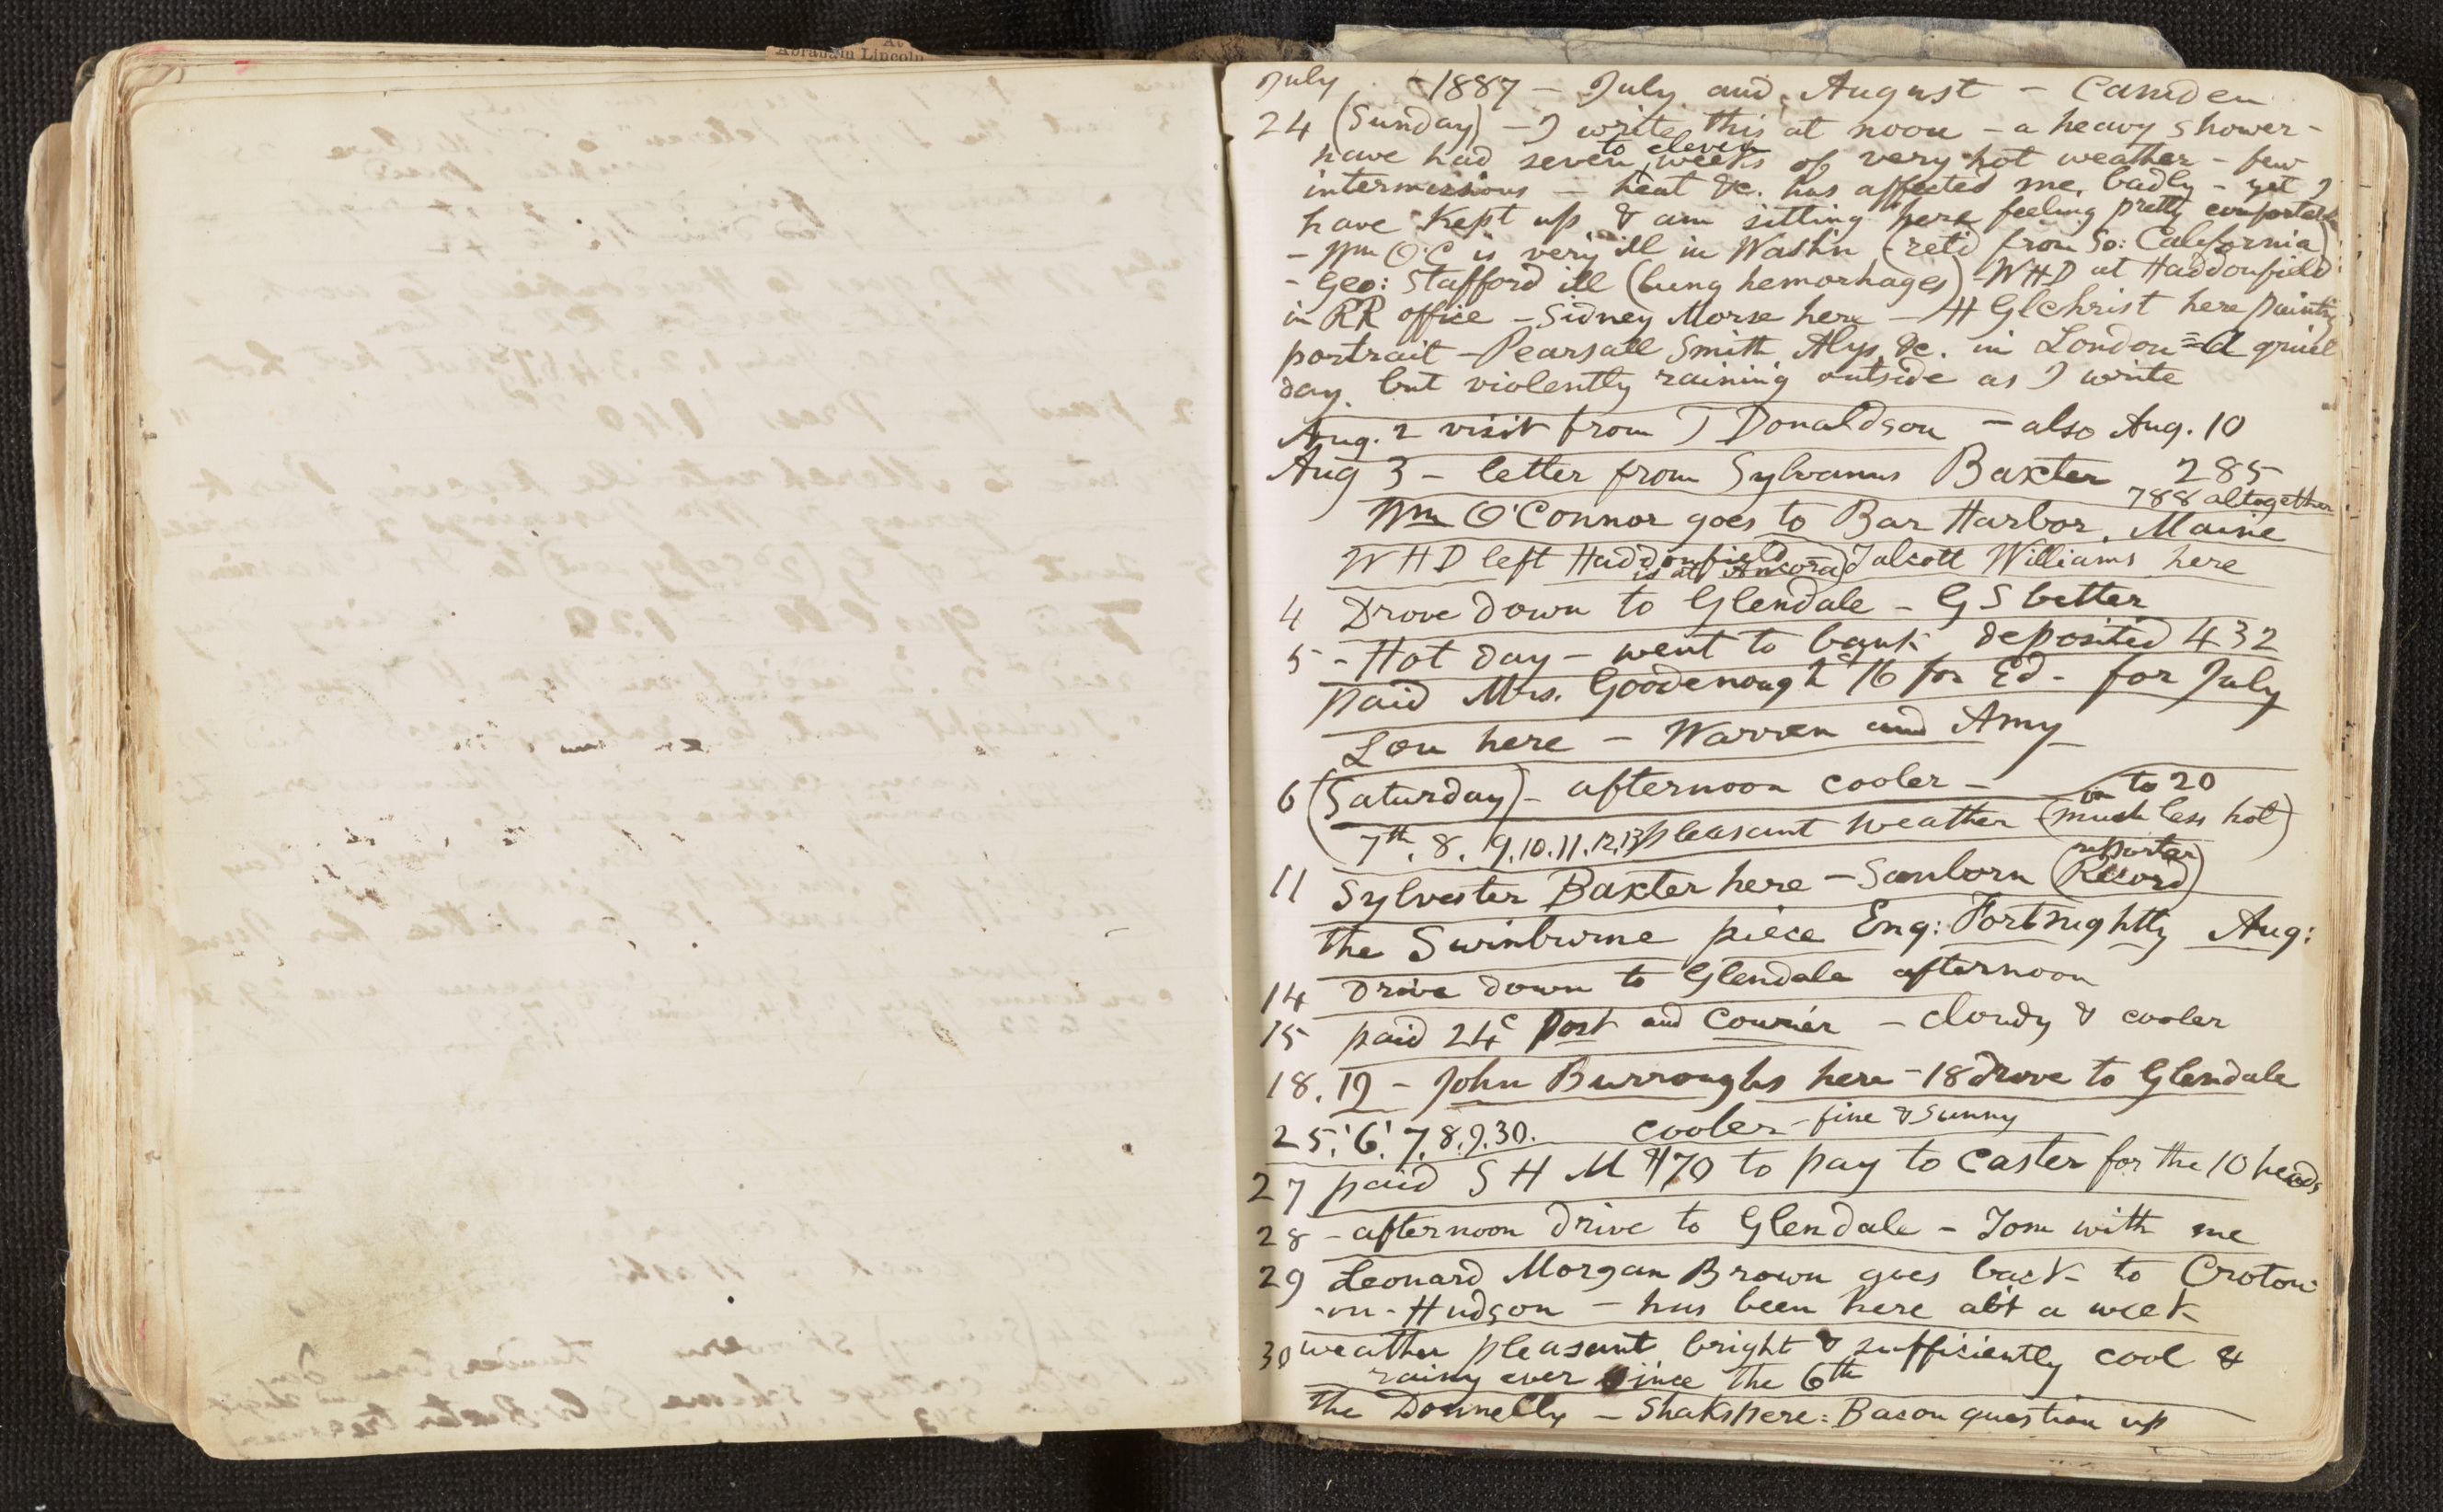 At
Abraham Lincoln
July - 1887 - July and August - Camden
24 (Sunday) - I write this at noon - a heavy shower -
to eleven
have had seven weeks of very hot weather - few
intermissions - heat &c. has affected me badly - yet I
have kept up & am sitting here feeling pretty comfortable
- Wm O'C is very ill in Washn (ret'd from So: California)
- Geo: Stafford ill (lung hemorhages) - WHD at Haddonfield
in RR office - Sidney Morse here - H Glchrist here painting
portrait - Pearsall Smith, Alys, &c. in London = a quiet
day, but violently raining outside as I write
Aug. 2 visit from T Donaldson - also Aug. 10
Aug 3 - letter from Sylvanus Baxter 285
788 altogether
Wm O'Connor goes to Bar Harbor, Maine
WHD left Haddonfield Talcott Williams here
is at Ancora
4 Drove down to Glendale - G S better
5 - Hot day - went to bank deposited 432
paid Mrs. Goodenough 16 for Ed - for July
Lou here - Warren and Amy
6 (Saturday) - afternoon cooler - to 20
7th, 8, 9, 10, 11, 12, 13 pleasant weather (much less hot)
reporter
11 Sylvester Baxter here - Sanborn (Record)
the Swinburne piece Eng: Fortnightly Aug:
14 Drive down to Glendale afternoon
15 paid 24c Post and Courier - cloudy & cooler
18, 19 - John Burroughs here - 18 drove to Glendale
25, '6', 7, 8, 9, 30. cooler - fine & sunny
27 paid S H M $70 to pay to caster for the 10 heads
28 - afternoon drive to Glendale - Tom with me
29 Leonard Morgan Brown goes back to Croton
-on-Hudson - has been here ab't a week
30 weather pleasant bright & sufficiently cool &
rainy ever since the 6th
the Donnelly - Shakspere: Bacon question up